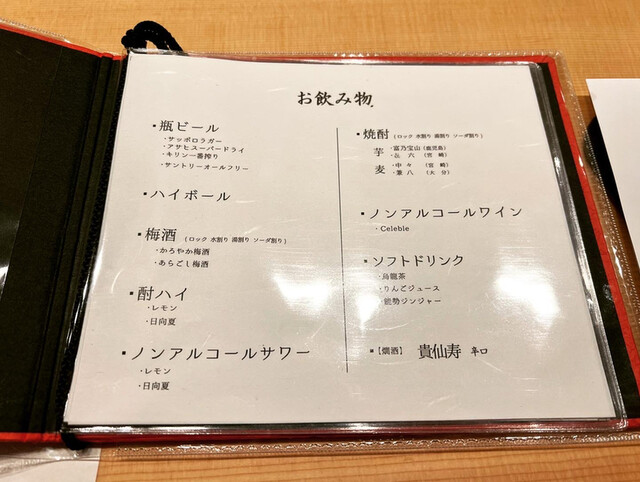 お飲み物
・瓶ビール
・サッポロラガー
・アサヒスーパードライ
・キリン一番搾り
・サントリーオールフリー
・ハイボール
・梅酒 (ロック 水割り 湯割り ソーダ割り)
・かろやか梅酒
・あらごし梅酒
・酎ハイ
・レモン
・日向夏
・ノンアルコールサワー
・レモン
・日向夏
・焼酎 (ロック 水割り 湯割り ソーダ割り)
芋 ・富乃宝山 (鹿児島)
・㐂六 (宮崎)
麦 ・中々 (宮崎)
・兼八 (大分)
・ノンアルコールワイン
・Celeble
・ソフトドリンク
・烏龍茶
・りんごジュース
・能勢ジンジャー
■【燗酒】 貴仙寿 辛口